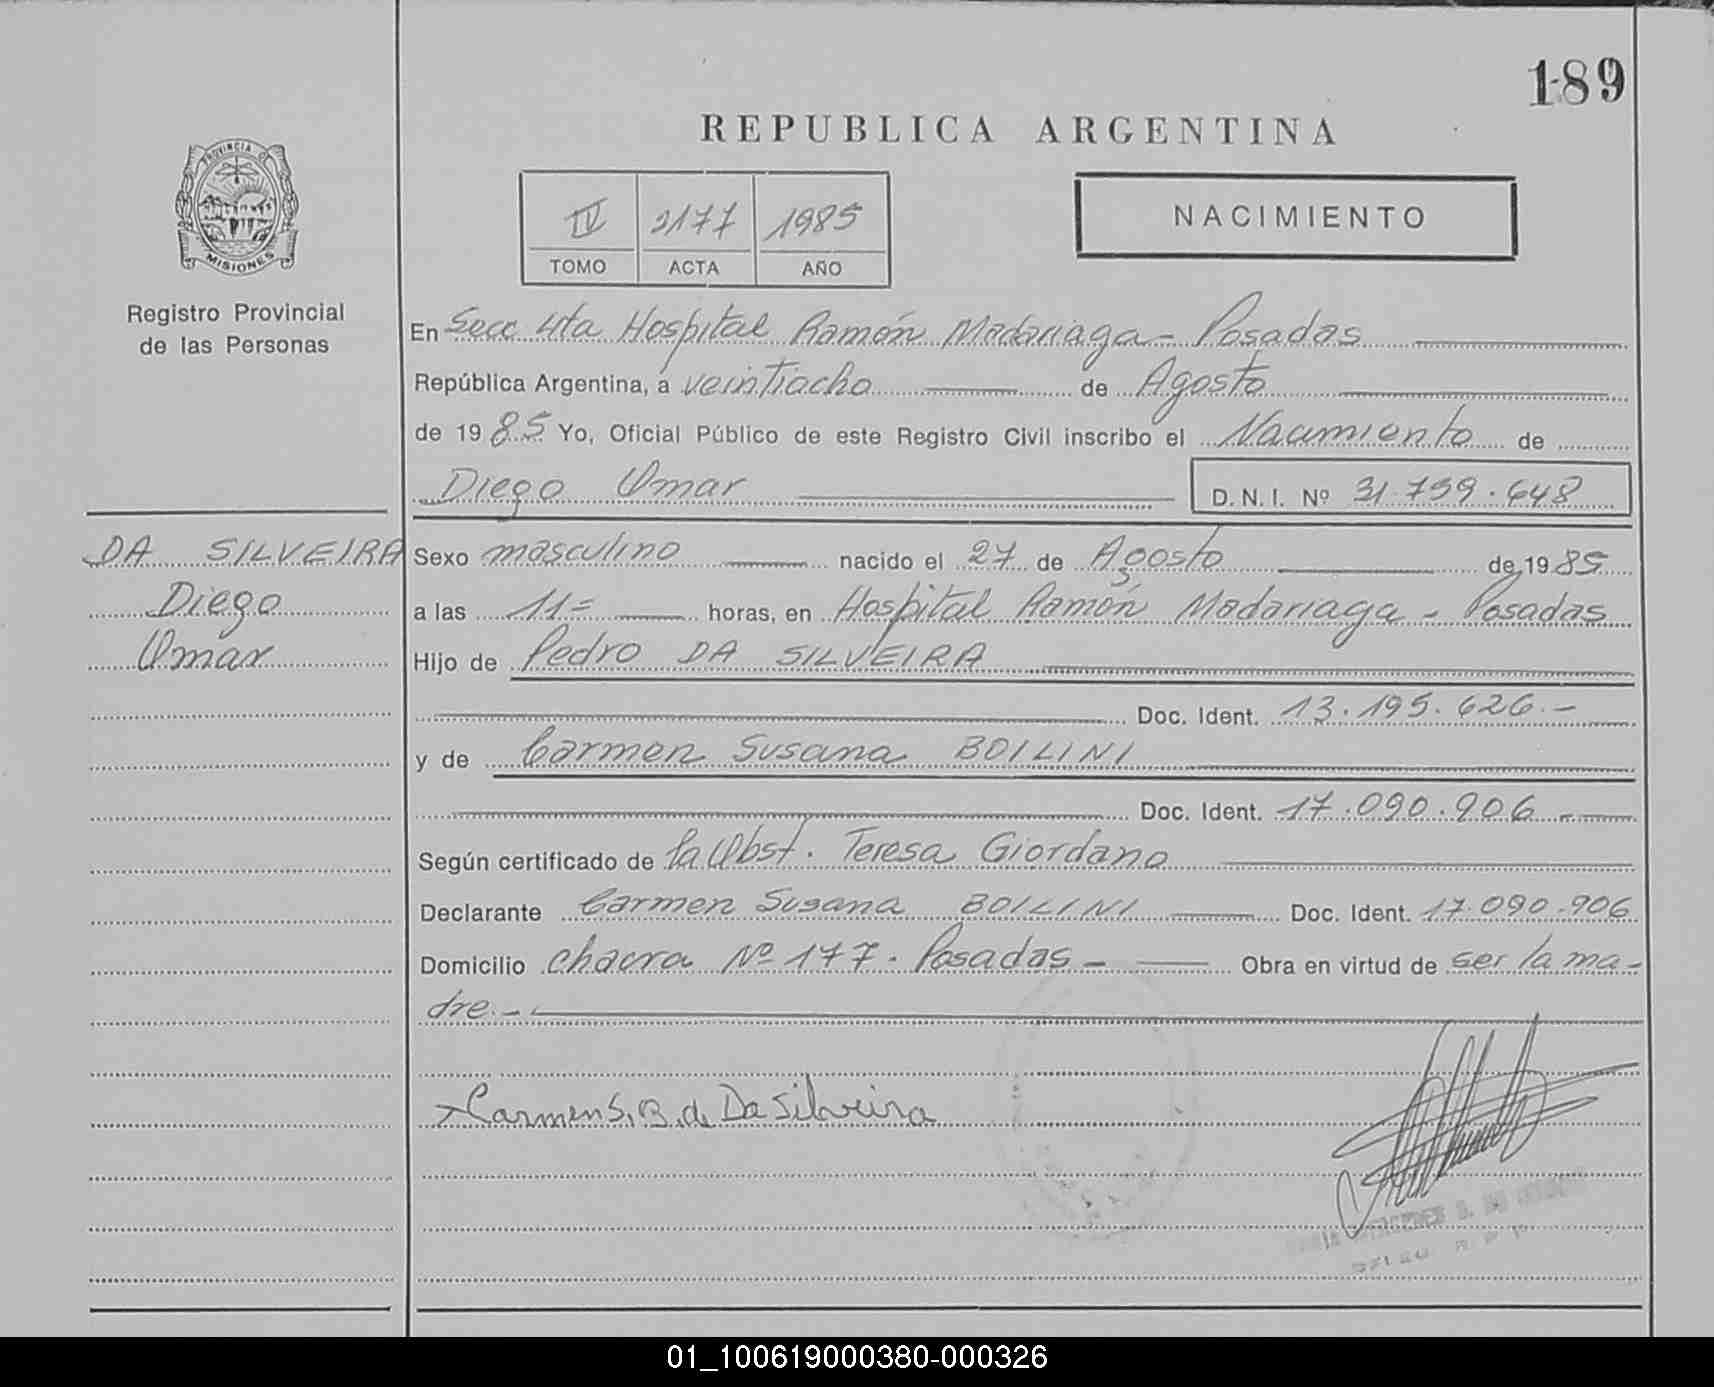 189
REPUBLICA ARGENTINA
PROVINCIA DE
MISIONES
Registro Provincial
de las Personas
IV 2177 1985
TOMO ACTA AÑO
NACIMIENTO
En Secc 4ta Hospital Ramón Madariaga - Posadas
República Argentina, a veintiocho de Agosto
de 19 85 Yo, Oficial Público de este Registro Civil inscribo el Nacimiento de
Diego Omar D.N.I. Nº 31.759.648
DA SILVEIRA
Diego
Omar
Sexo masculino nacido el 27 de Agosto de 19 85
a las 11= horas, en Hospital Ramón Madariaga - Posadas
Hijo de Pedro DA SILVEIRA
Doc. Ident. 13.195.626.-
y de Carmen Susana BOILINI
Doc. Ident. 17.090.906.-
Según certificado de la Obst. Teresa Giordano
Declarante Carmen Susana BOILINI Doc. Ident. 17.090.906
Domicilio chacra Nº 177. Posadas - Obra en virtud de ser la ma-
dre.-
Carmen S. B. de Da Silveira
01_100619000380-000326